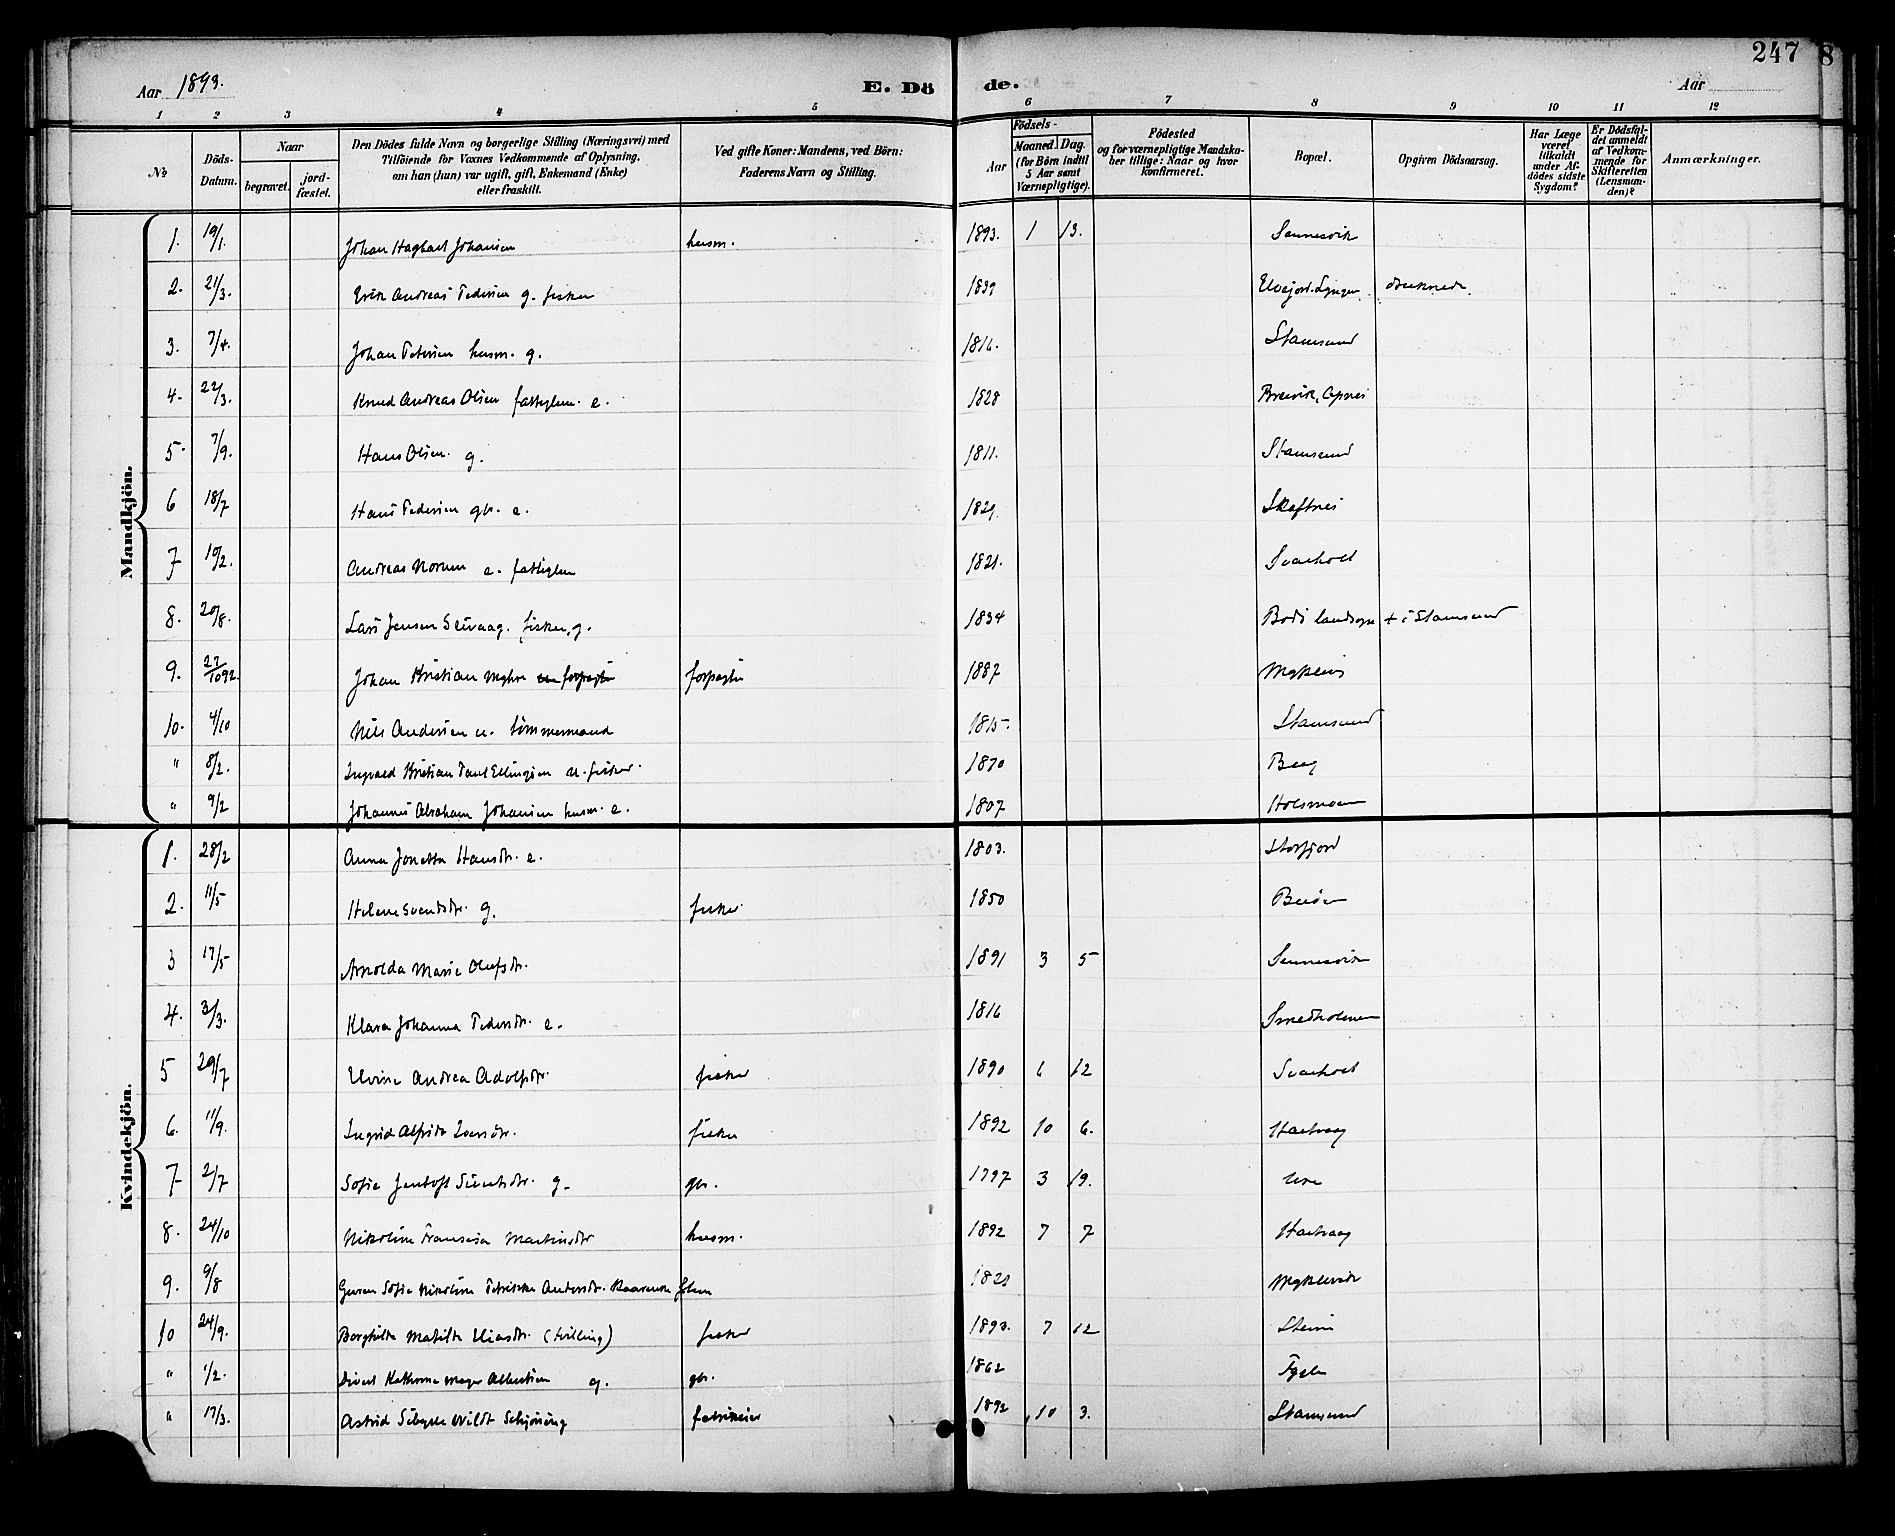 247
8
Aar 1893.
E. Dö
de.
Aar
1 2 3 4 5 6 7 8 9 10 11 12
No
Döds-Datum.
Naar
begravet.
jord-fæstet.
Den Dödes fulde Navn og borgerlige Stilling (Næringsvei) med
Tilföiende for Voxnes Vedkommende af Oplysning,
om han (hun) var ugift, gift, Enkemand (Enke)
eller fraskilt.
Ved gifte Koner: Mandens, ved Börn:
Faderens Navn og Stilling.
Födsels-
Aar
Maaned. Dag.
(for Börn indtil
5 Aar samt
Værnepligtige).
Födested
og for værnepligtige Mandska-
ber tillige: Naar og hvor
konfirmeret.
Bopæl.
Opgiven Dödsaarsag.
Har Læge
været
tilkaldt
under Af-
dödes sidste
Sygdom?
Er Dödsfal-
det anmeldt
af Vedkom-
mende for
Skifteretten
(Lensman-
den)?
Anmærkninger.
Mandkjön.
1. 19/1. Johan Hagbart Johansen husm. 1893. 1 13. Sennesvik
2. 21/3. Erik Andreas Pedersen g. fisker 1839 Elvejord Lyngen druknede.
3. 7/4. Johan Petersen husm. g. 1816. Stamsund
4. 22/3. Knud Andreas Olsen fattiglem. e. 1828 Brevik,
5. 7/9. Hans Olsen. g. 1811. Stamsund
6 18/7 Hans Pedersen gbr. e. 1829. Skaftnes
7 10/2. Andreas e. fattiglem 1821. Svarholt
8. 20/8. Lars Jensen fisker, g. 1834 Bodö landsogn + i Stamsund
9. 27/10 92. Johan Kristian Myhre forpagter 1887
10. 4/10 Nils Andersen u. tömmermand 1815. Stamsund
" 8/2. Ingvald Kristian Paul Ellingsen u. fisker. 1870 Berg
" 9/2 Johannes Abraham Johansen husm. e. 1807 Holsmoen
Kvindekjön.
1. 28/2 Anna Jonetta Hansdtr. e. 1803. Storfjord
2. 11/5 Helene Svendsdtr. g. fisker 1850
3 17/5 Arnolda Marie Olufsdtr. 1891 3 5 Sennesvik
4. 3/3. Klara Johanna Pedersdtr. e. 1816 Smedholmen
5 29/7 Elvine Andrea Adolfsdtr. fisker 1890 6 12 Svarholt
6. 11/9. Ingrid Alfrida Iversdtr. fisker 1892 10 6. Hartvaag
7 2/7 Sofie Jentoft Sivertsdtr. g. gbr. 1797 3 19. Ure
8. 24/10 Nikoline Fransisa Martinsdtr husm. 1892 7 7 Hartvaag
9. 9/8 Sofie Nikoline Petrikke Andersdtr. 1821
10 24/9. Borghilda Matilda Eliasdtr. (tvilling) fisker 1893. 7 12 Steine
" 1/2. Sivert Kathrine Meyer Albertsen g. gbr. 1862 Fygle
" 17/3. Astrid Sibylle Wildt Schjöning fabrikeier 1892 10 3. Stamsund